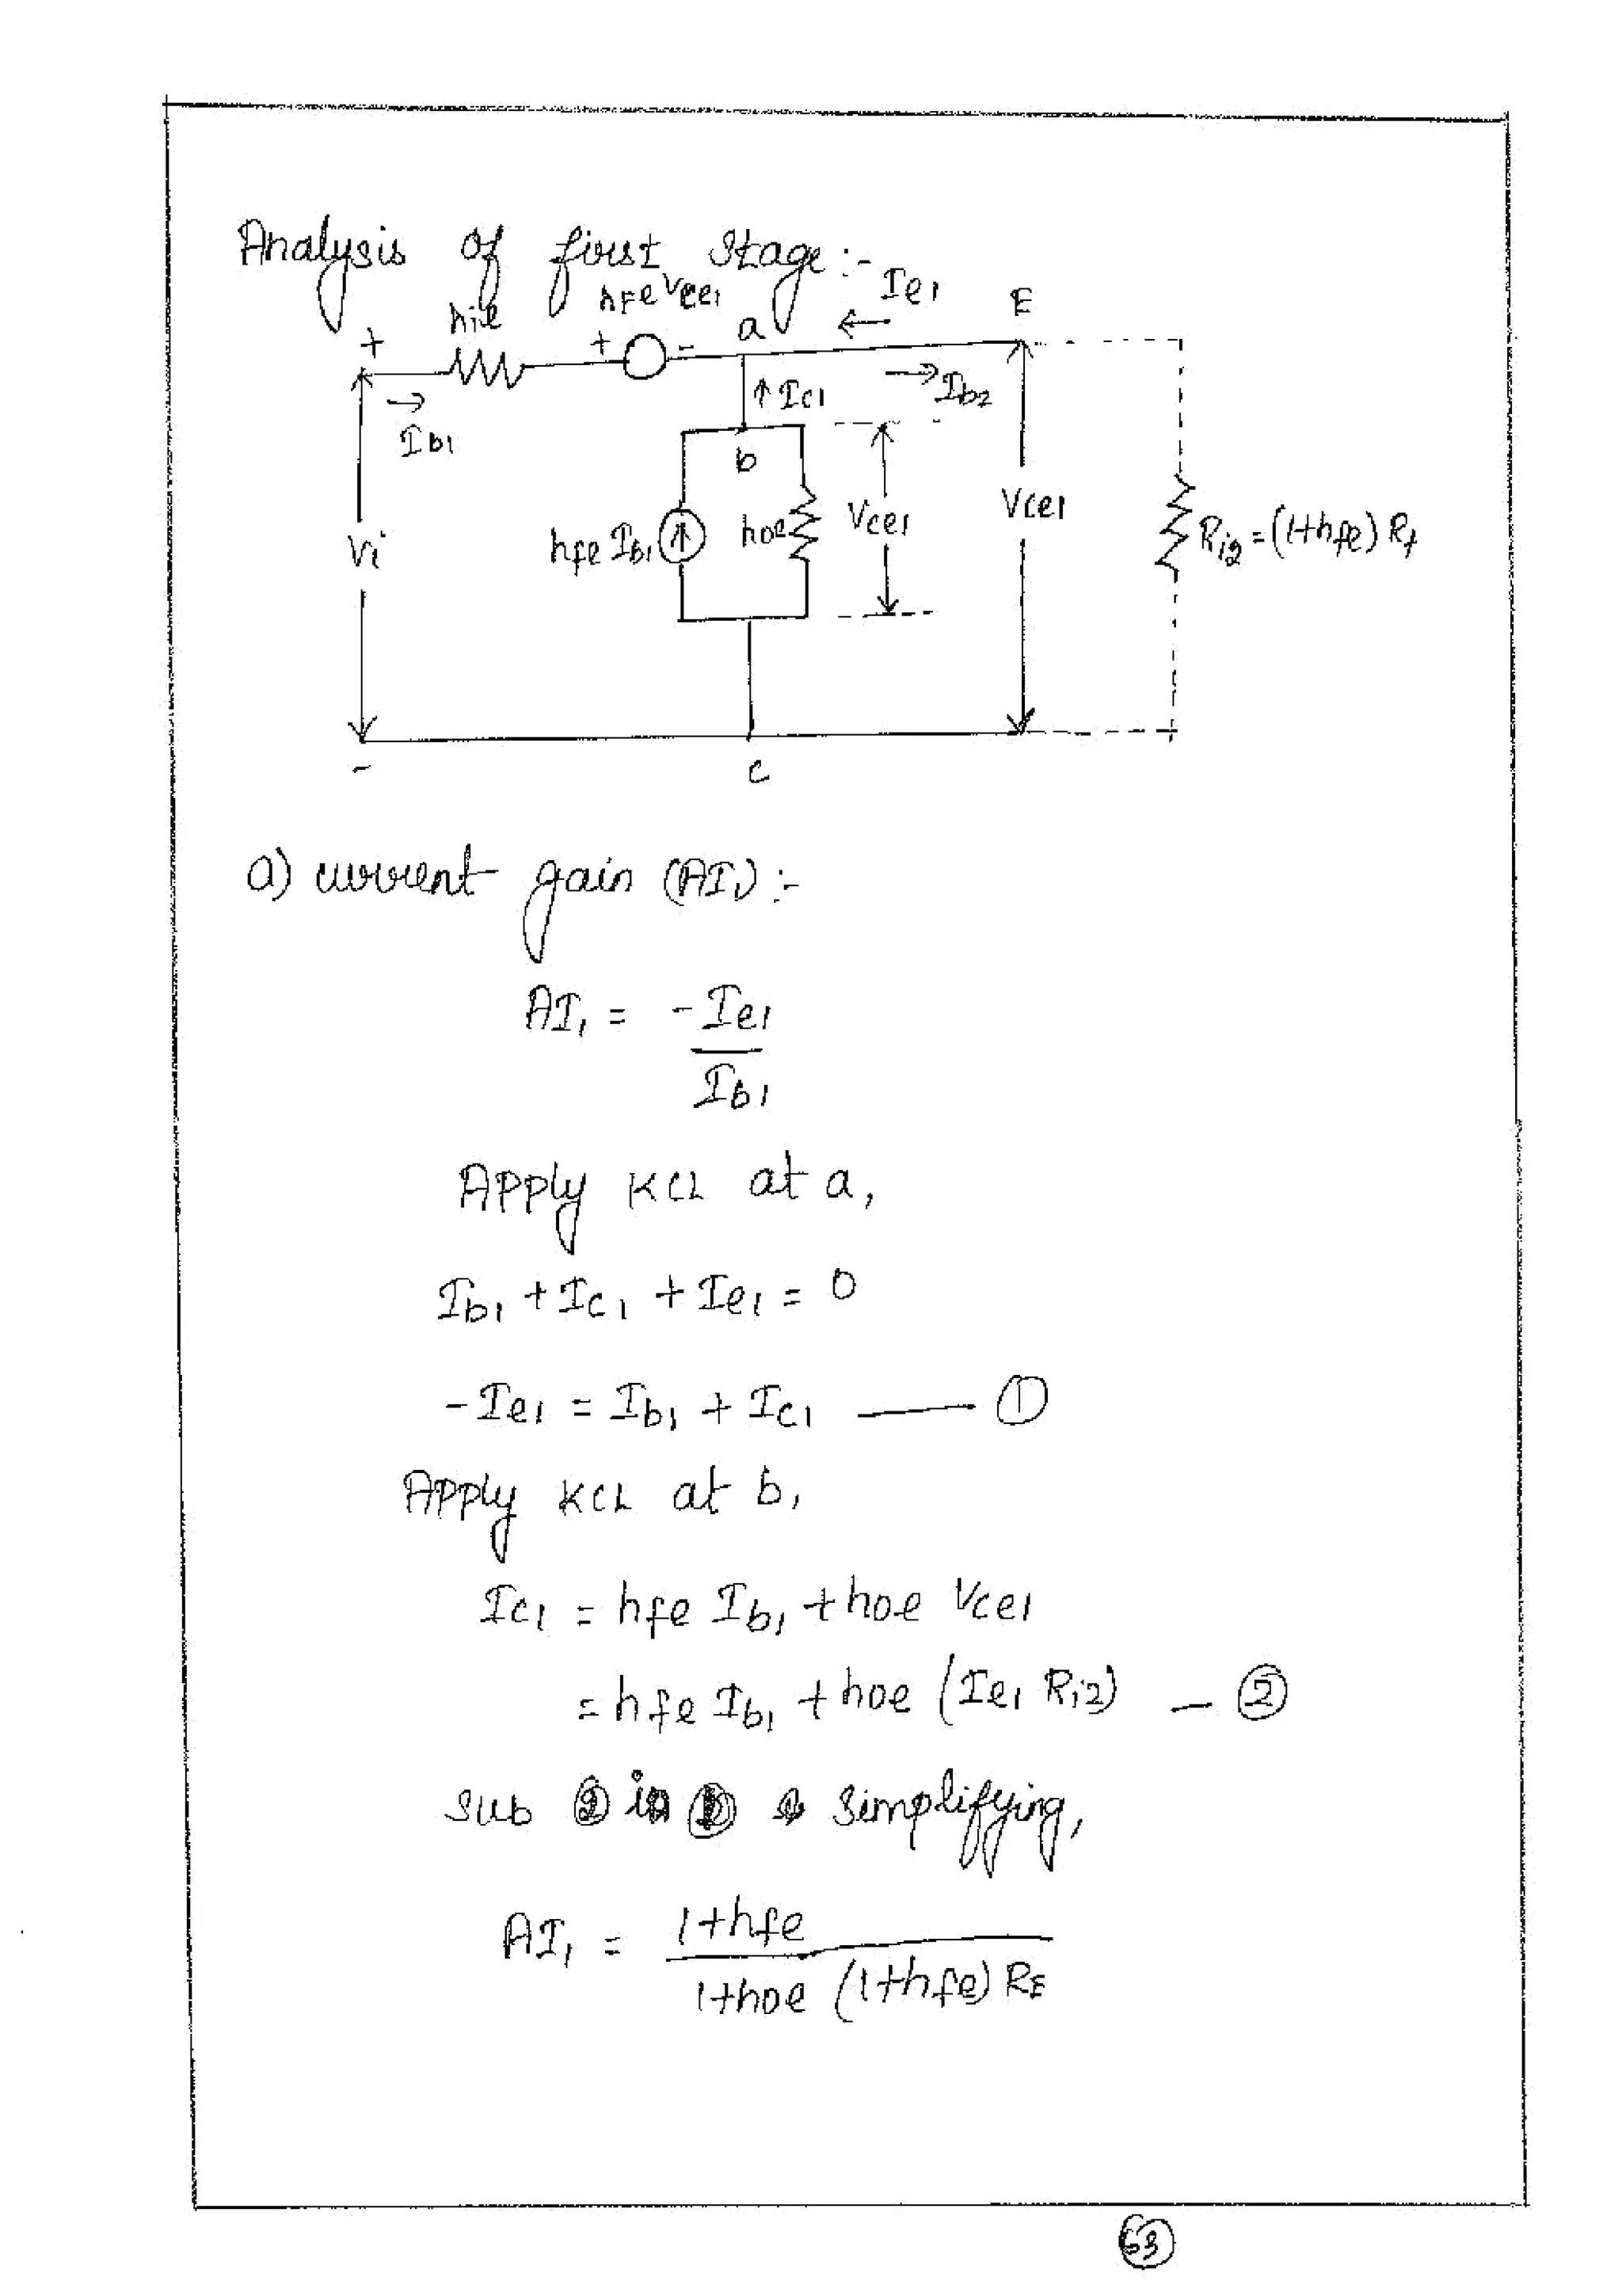 Analysis of first stage :-
hie
hfe Vce1
a
Ie1
E
+
+
-
Ib1
Ic1
Ib2
b
Vi
hfe Ib1
hoe
Vce1
Vce1
Ri2 = (1+hfe) Rt
-
c
a) current gain (AI1) :-
AI1 = -Ie1
Ib1
Apply KCL at a,
Ib1 + Ic1 + Ie1 = 0
-Ie1 = Ib1 + Ic1 —— ①
Apply KCL at b,
Ic1 = hfe Ib1 + hoe Vce1
= hfe Ib1 + hoe (Ie1 Ri2) — ②
sub ② in ① & simplifying,
AI1 = 1+hfe
1+hoe (1+hfe) RE
63